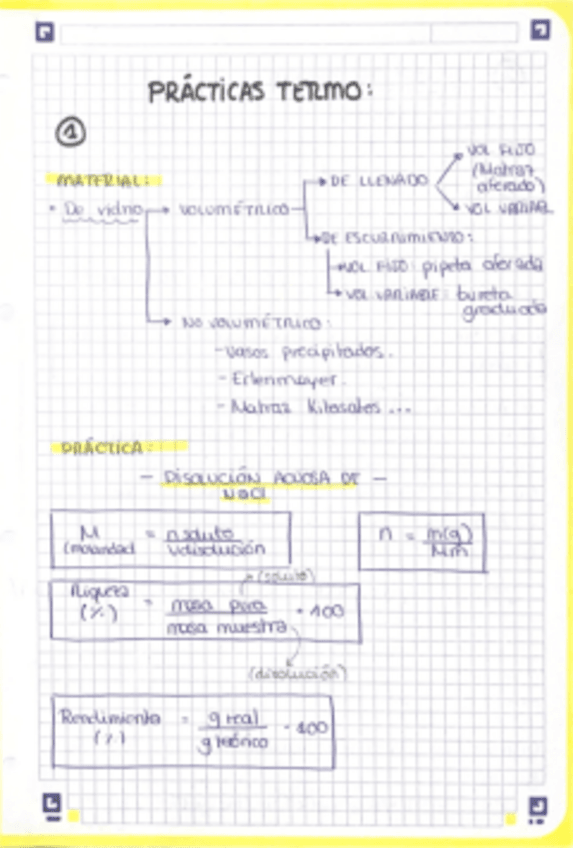 PRÁCTICAS TERMO:
1
MATERIAL:
• De vidrio → VOLUMÉTRICO
→ DE LLENADO
VOL FIJO
(Matraz
aforado)
VOL VARIABLE
→ DE ESCURRIMIENTO:
→ VOL FIJO: pipeta aforada
→ VOL VARIABLE: bureta
graduada
→ NO VOLUMÉTRICO:
- Vasos precipitados.
- Erlenmeyer.
- Matraz Kitasates ...
PRÁCTICA:
- DISOLUCIÓN ACUOSA DE -
NaCl
M (molaridad = n soluto / V disolución
n = m(g) / Mm
(soluto)
Riqueza (%) = masa pura / masa muestra · 100
(disolución)
Rendimiento (%) = g real / g teórico · 100